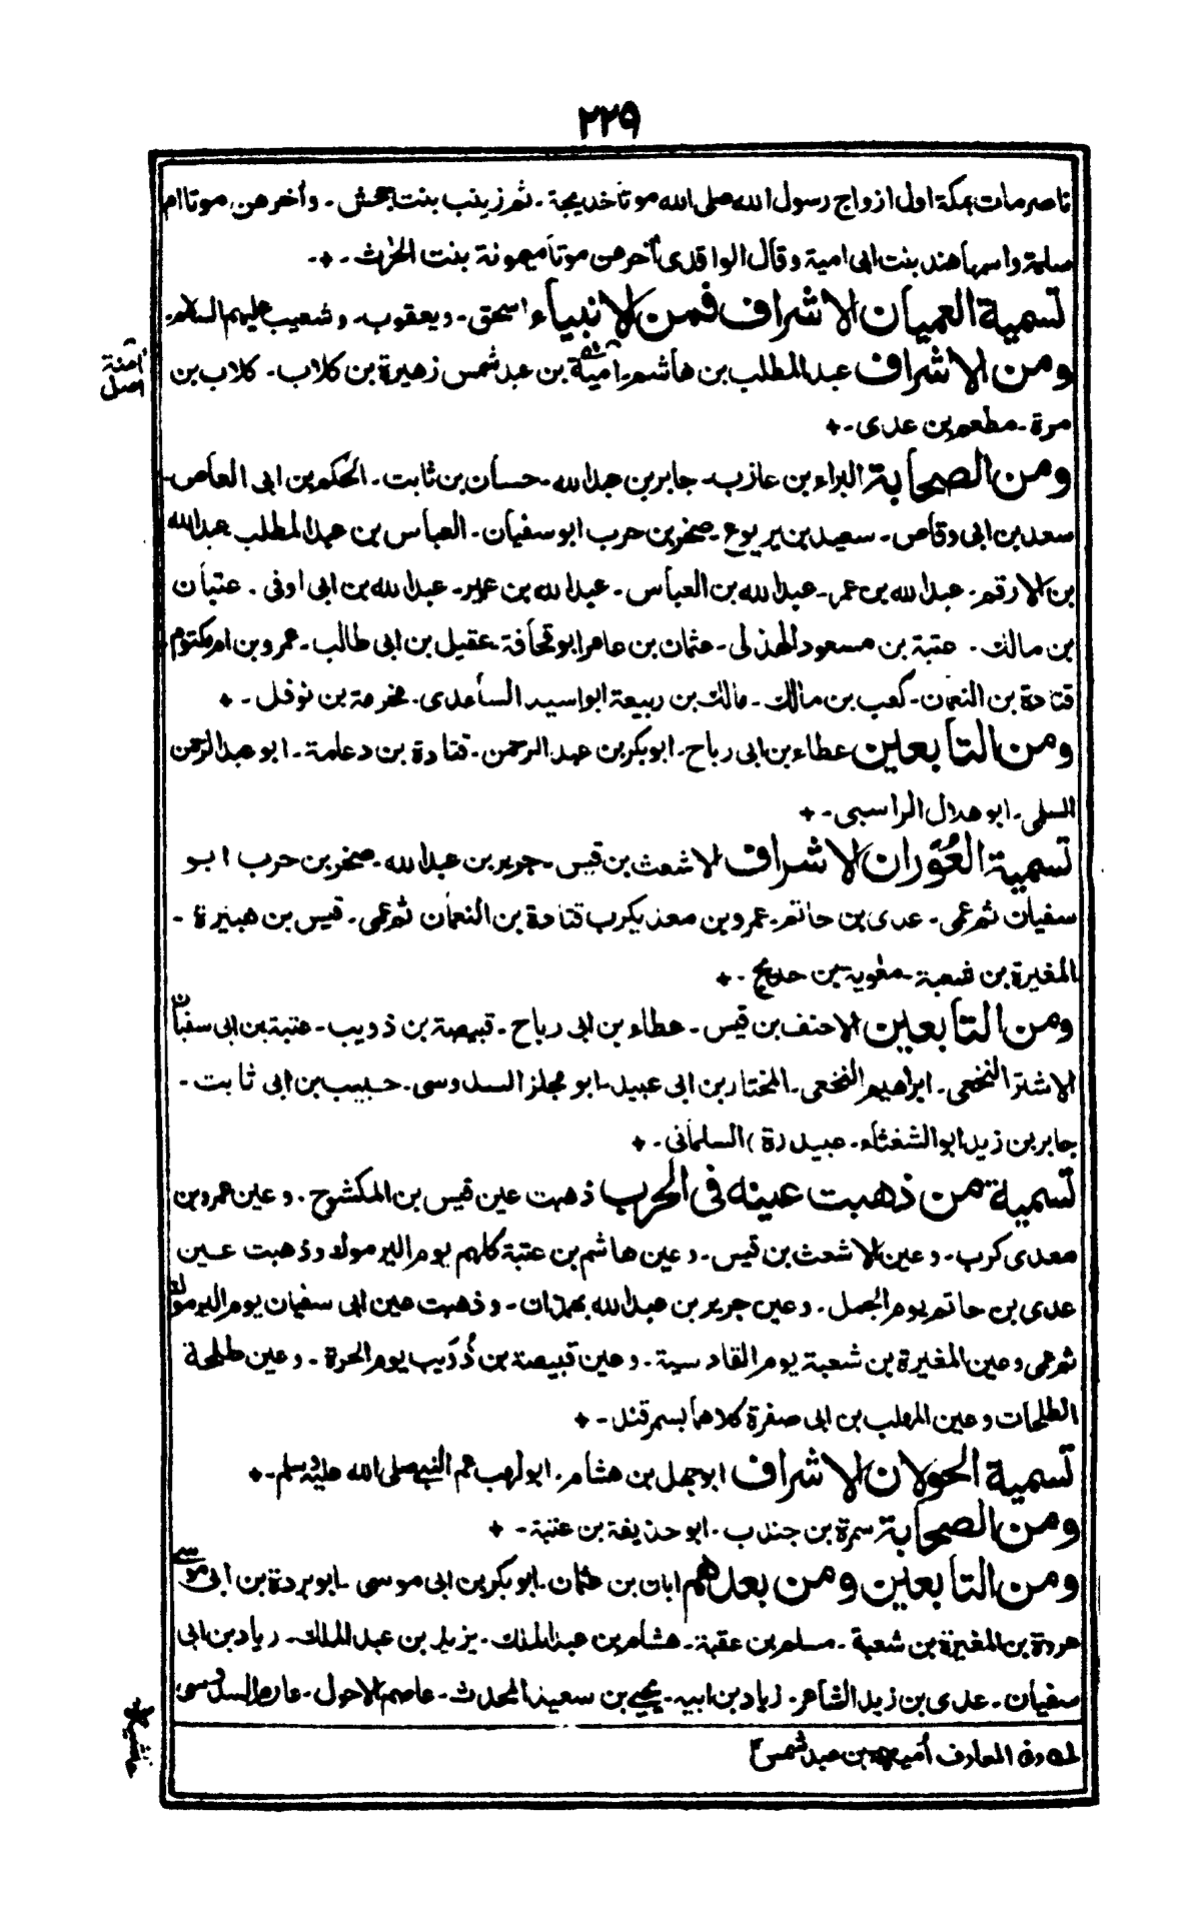 ٢٢٩
ناصر مات بمكة اول ازواج رسول الله صلى الله موتا خديجة ـ ثم زينب بنت جحش ـ وأخرهن موتا ام
سلمة واسمها هند بنت ابى امية وقال الواقدى أخرهن موتا ميمونة بنت الحرث ـ
تسمية العميان الاشراف فمن الانبياء اسحق ـ ويعقوب ـ وشعيب عليهم السلام ـ
ومن الاشراف عبد المطلب بن هاشم ـ أمية بن عبد شمس زهيرة بن كلاب ـ كلاب بن
أمنة
اصل
مرة ـ مطعم بن عدى ـ
ومن الصحابة البراء بن عازب ـ جابر بن عبد الله ـ حسان بن ثابت ـ الحكم بن ابى العاص ـ
سعد بن ابى وقاص ـ سعيد بن يربوع ـ صخر بن حرب ابو سفيان ـ العباس بن عبد المطلب عبد الله
بن الارقم ـ عبد الله بن عمر ـ عبد الله بن العباس ـ عبد الله بن عمير ـ عبد الله بن ابى اوفى ـ عتبان
بن مالك ـ عتبة بن مسعود الهذلى ـ عثمان بن عامر ابو قحافة ـ عقيل بن ابى طالب ـ عمرو بن ام مكتوم
قتادة بن النعمان ـ كعب بن مالك ـ مالك بن ربيعة ابو اسيد الساعدى ـ مخرمة بن نوفل ـ
ومن التابعين عطاء بن ابى رباح ـ ابو بكر بن عبد الرحمن ـ قتادة بن دعامة ـ ابو عبد الرحمن
السلمى ـ ابو هلال الراسبى ـ
تسمية العُوَران الاشراف الاشعث بن قيس ـ جرير بن عبد الله ـ صخر بن حرب ابو
سفيان ثم عمى ـ عدى بن حاتم ـ عمرو بن معديكرب قتادة بن النعمان ثم عمى ـ قيس بن هبيرة ـ
المغيرة بن شعبة ـ معوية بن حديج ـ
ومن التابعين الاحنف بن قيس ـ عطاء بن ابى رباح ـ قبيصة بن ذويب ـ عتبة بن ابى سفيان
الاشتر النخعى ـ ابراهيم النخعى ـ المختار بن ابى عبيد ـ ابو مجلز السدوسى ـ حبيب بن ابى ثابت ـ
جابر بن زيد ابو الشغثاء ـ عبيد (ة) السلمانى ـ
تسمية من ذهبت عينه فى الحرب ذهبت عين قيس بن المكشوح ـ وعين عمرو بن
معدى كرب ـ وعين الاشعث بن قيس ـ وعين هاشم بن عتبة كلهم يوم اليرموك وذهبت عين
عدى بن حاتم يوم الجمل ـ وعين جرير بن عبد الله بهمدان ـ وذهبت عين ابى سفيان يوم اليرموك
ثم عمى وعين المغيرة بن شعبة يوم القادسية ـ وعين قبيصة بن ذُوَيب يوم الحرة ـ وعين طلحة
الطلحات وعين المهلب بن ابى صفرة كلاهما بسمرقند ـ
تسمية الحولان الاشراف ابو جهل بن هشام ـ ابو لهب عم النبى صلى الله عليه وسلم ـ
ومن الصحابة سمرة بن جندب ـ ابو حذيفة بن عتبة ـ
ومن التابعين ومن بعدهم ابان بن عثمان ـ ابو بكر بن ابى موسى ـ ابو بردة بن ابى موسى
عروة بن المغيرة بن شعبة ـ مسلم بن عقبة ـ هشام بن عبد الملك ـ يزيد بن عبد الملك ـ زياد بن ابى
سفيان ـ عدى بن زيد الشاعر ـ زياد بن ابيه ـ يحيى بن سعيد المحدث ـ عاصم الاحول ـ عارم السدوسى
وفى المعارف أمية بن عبد شمس